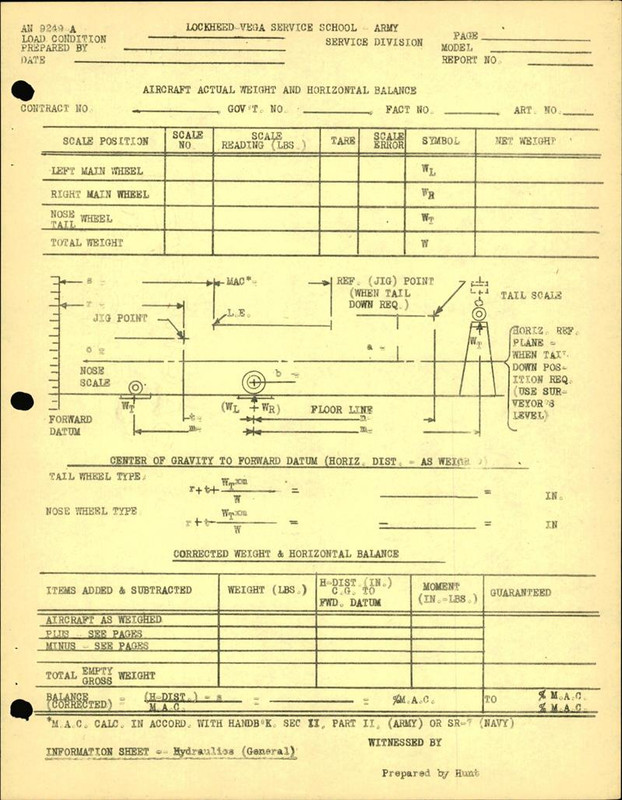 AN 9249 A
LOCKHEED-VEGA SERVICE SCHOOL - ARMY
LOAD CONDITION
SERVICE DIVISION
PAGE
PREPARED BY
MODEL
DATE
REPORT NO.
AIRCRAFT ACTUAL WEIGHT AND HORIZONTAL BALANCE
CONTRACT NO. GOV'T. NO. FACT NO. ART. NO.
SCALE POSITION SCALE NO SCALE READING (LBS.) TARE SCALE ERROR SYMBOL NET WEIGHT
LEFT MAIN WHEEL WL
RIGHT MAIN WHEEL WR
NOSE WHEEL WT
TAIL
TOTAL WEIGHT W
s MAC* REF. (JIG) POINT
(WHEN TAIL DOWN REQ.)
TAIL SCALE
r L.E.
JIG POINT
WT
HORIZ. REF. PLANE - WHEN TAIL DOWN POSITION REQ. (USE SURVEYOR'S LEVEL)
a
NOSE SCALE
b
WT (WL + WR) FLOOR LINE
FORWARD DATUM
t
m m
CENTER OF GRAVITY TO FORWARD DATUM (HORIZ. DIST. - AS WEIGH
TAIL WHEEL TYPE:
r+t+ WT×m / W = = IN.
NOSE WHEEL TYPE
r+t- WT×m / W = = IN
CORRECTED WEIGHT & HORIZONTAL BALANCE
ITEMS ADDED & SUBTRACTED WEIGHT (LBS.) H-DIST. (IN.) C.G. TO FWD. DATUM MOMENT (IN.-LBS.) GUARANTEED
AIRCRAFT AS WEIGHED
PLUS - SEE PAGES
MINUS - SEE PAGES
TOTAL EMPTY GROSS WEIGHT
BALANCE (CORRECTED) = (H-DIST.) - s / M.A.C. = = %M.A.C. TO % M.A.C.
% M.A.C.
*M.A.C. CALC. IN ACCORD. WITH HANDB'K. SEC II, PART II, (ARMY) OR SR-7 (NAVY)
WITNESSED BY
INFORMATION SHEET -- Hydraulics (General)
Prepared by Hunt